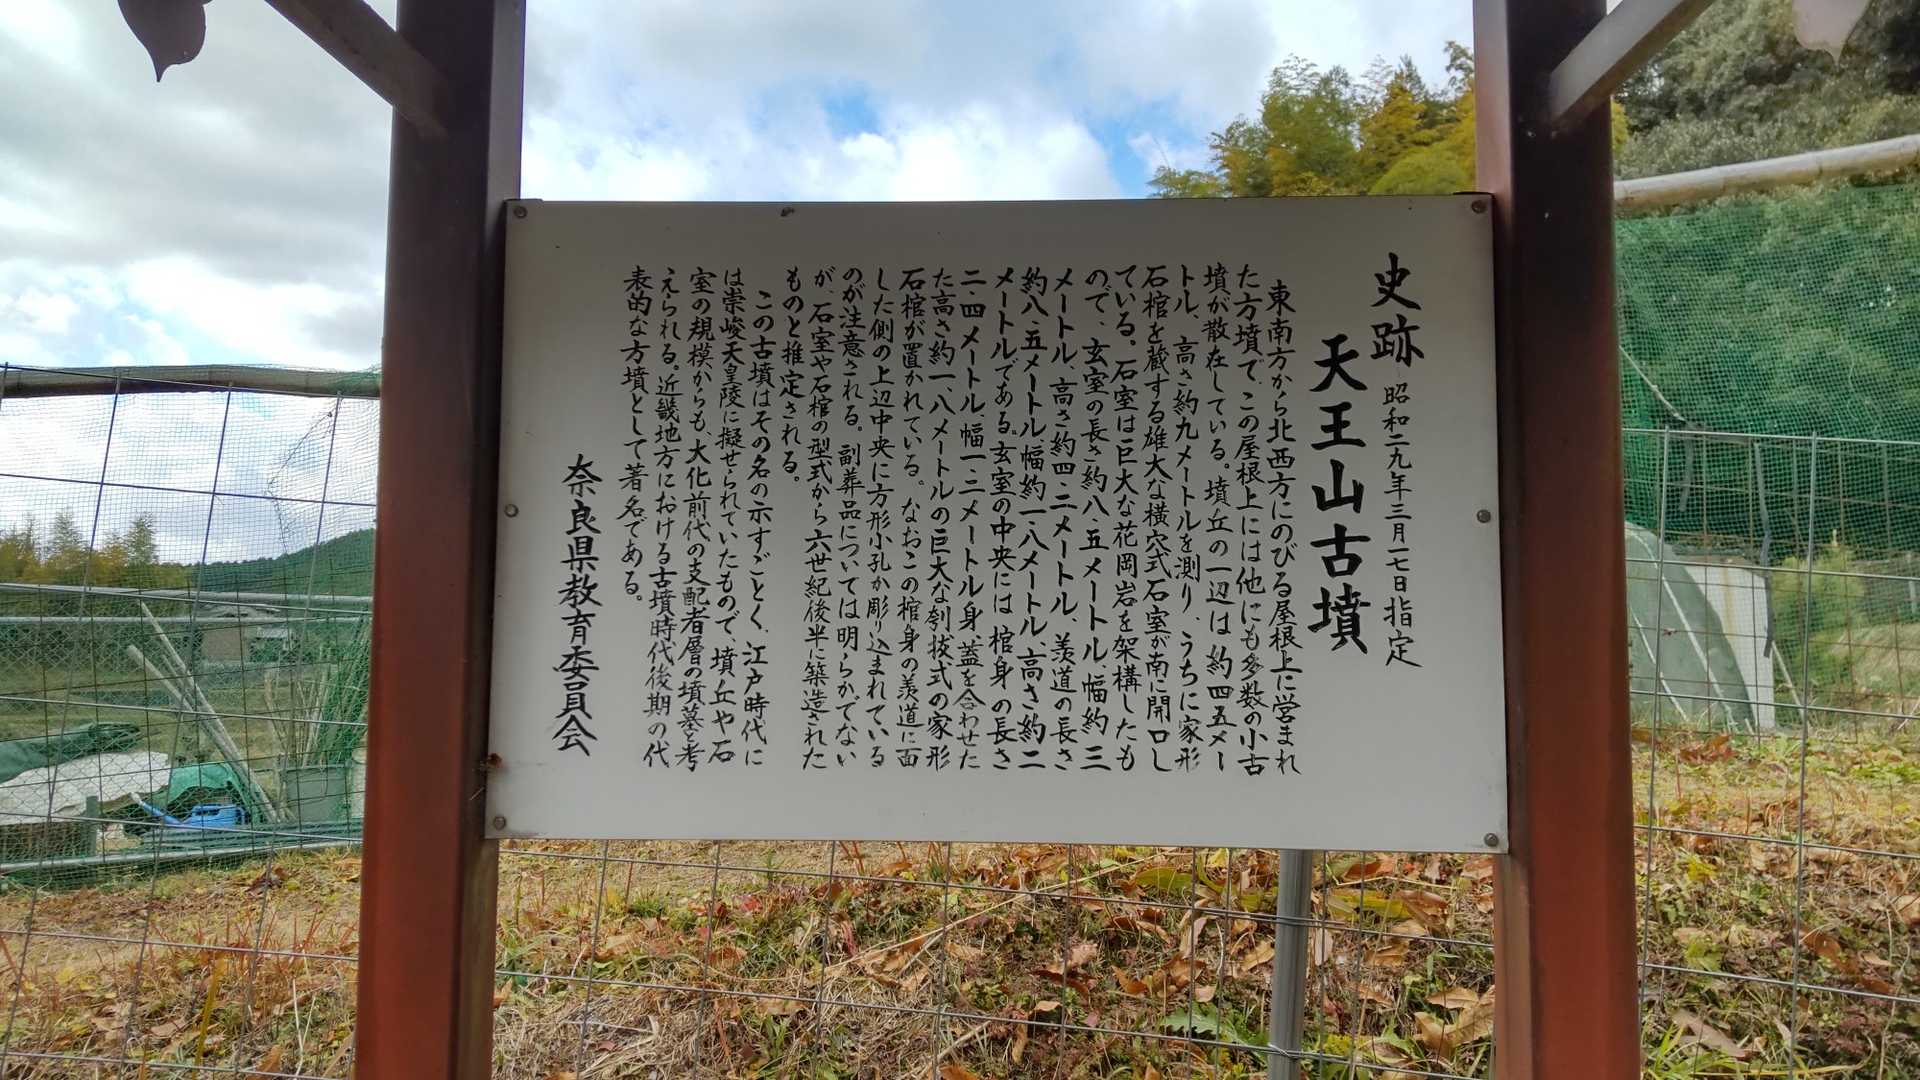 史跡 昭和二九年三月一七日指定
天王山古墳
東南方から北西方にのびる屋根上に営まれ
た方墳で、この屋根上には他にも多数の小古
墳が散在している。墳丘の一辺は約四五メー
トル、高さ約九メートルを測り、うちに家形
石棺を蔵する雄大な横穴式石室が南に開口し
ている。石室は巨大な花岡岩を架構したも
ので、玄室の長さ約八・五メートル、幅約三
メートル、高さ約四・二メートル、羨道の長さ
約八・五メートル、幅約一・八メートル、高さ約二
メートルである。玄室の中央には、棺身の長さ
二・四メートル、幅一・三メートル、身・蓋を合わせた
た高さ約一・八メートルの巨大な刳抜式の家形
石棺が置かれている。なおこの棺身の羨道に面
した側の上辺中央に方形小孔か彫り込まれている
のが注意される。副葬品については明らかでない
が、石室や石棺の型式から六世紀後半に築造された
ものと推定される。
この古墳はその名の示すごとく、江戸時代に
は崇峻天皇陵に擬せられていたもので、墳丘や石
室の規模からも、大化前代の支配者層の墳墓と考
えられる。近畿地方における古墳時代後期の代
表的な方墳として著名である。
奈良県教育委員会